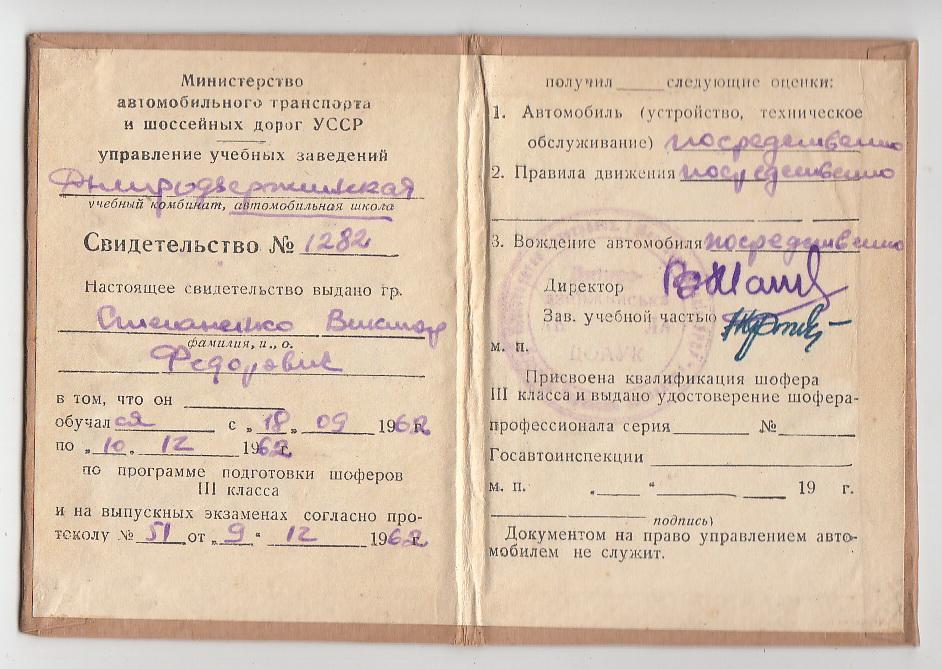 Министерство
автомобильного транспорта
и шоссейных дорог УССР
управление учебных заведений
Днепродзержинская
учебный комбинат, автомобильная школа
Свидетельство № 1282
Настоящее свидетельство выдано гр.
Степаненко Виктор
фамилия, и., о.
Федорович
в том, что он
обучался с „18„ 09 1962 г.
по „10„ 12 1962 г.
по программе подготовки шоферов
III класса
и на выпускных экзаменах согласно про-
токолу № 51 от „9“ 12 1962 г.
получил следующие оценки:
1. Автомобиль (устройство, техническое
обслуживание) посредственно
2. Правила движения посредственно
3. Вождение автомобиля посредственно
Директор
Зав. учебной частью
м. п.
Присвоена квалификация шофера
III класса и выдано удостоверение шофера-
профессионала серия № 
Госавтоинспекции
м. п. „ “ 19 г.
подпись)
Документом на право управлением авто-
мобилем не служит.